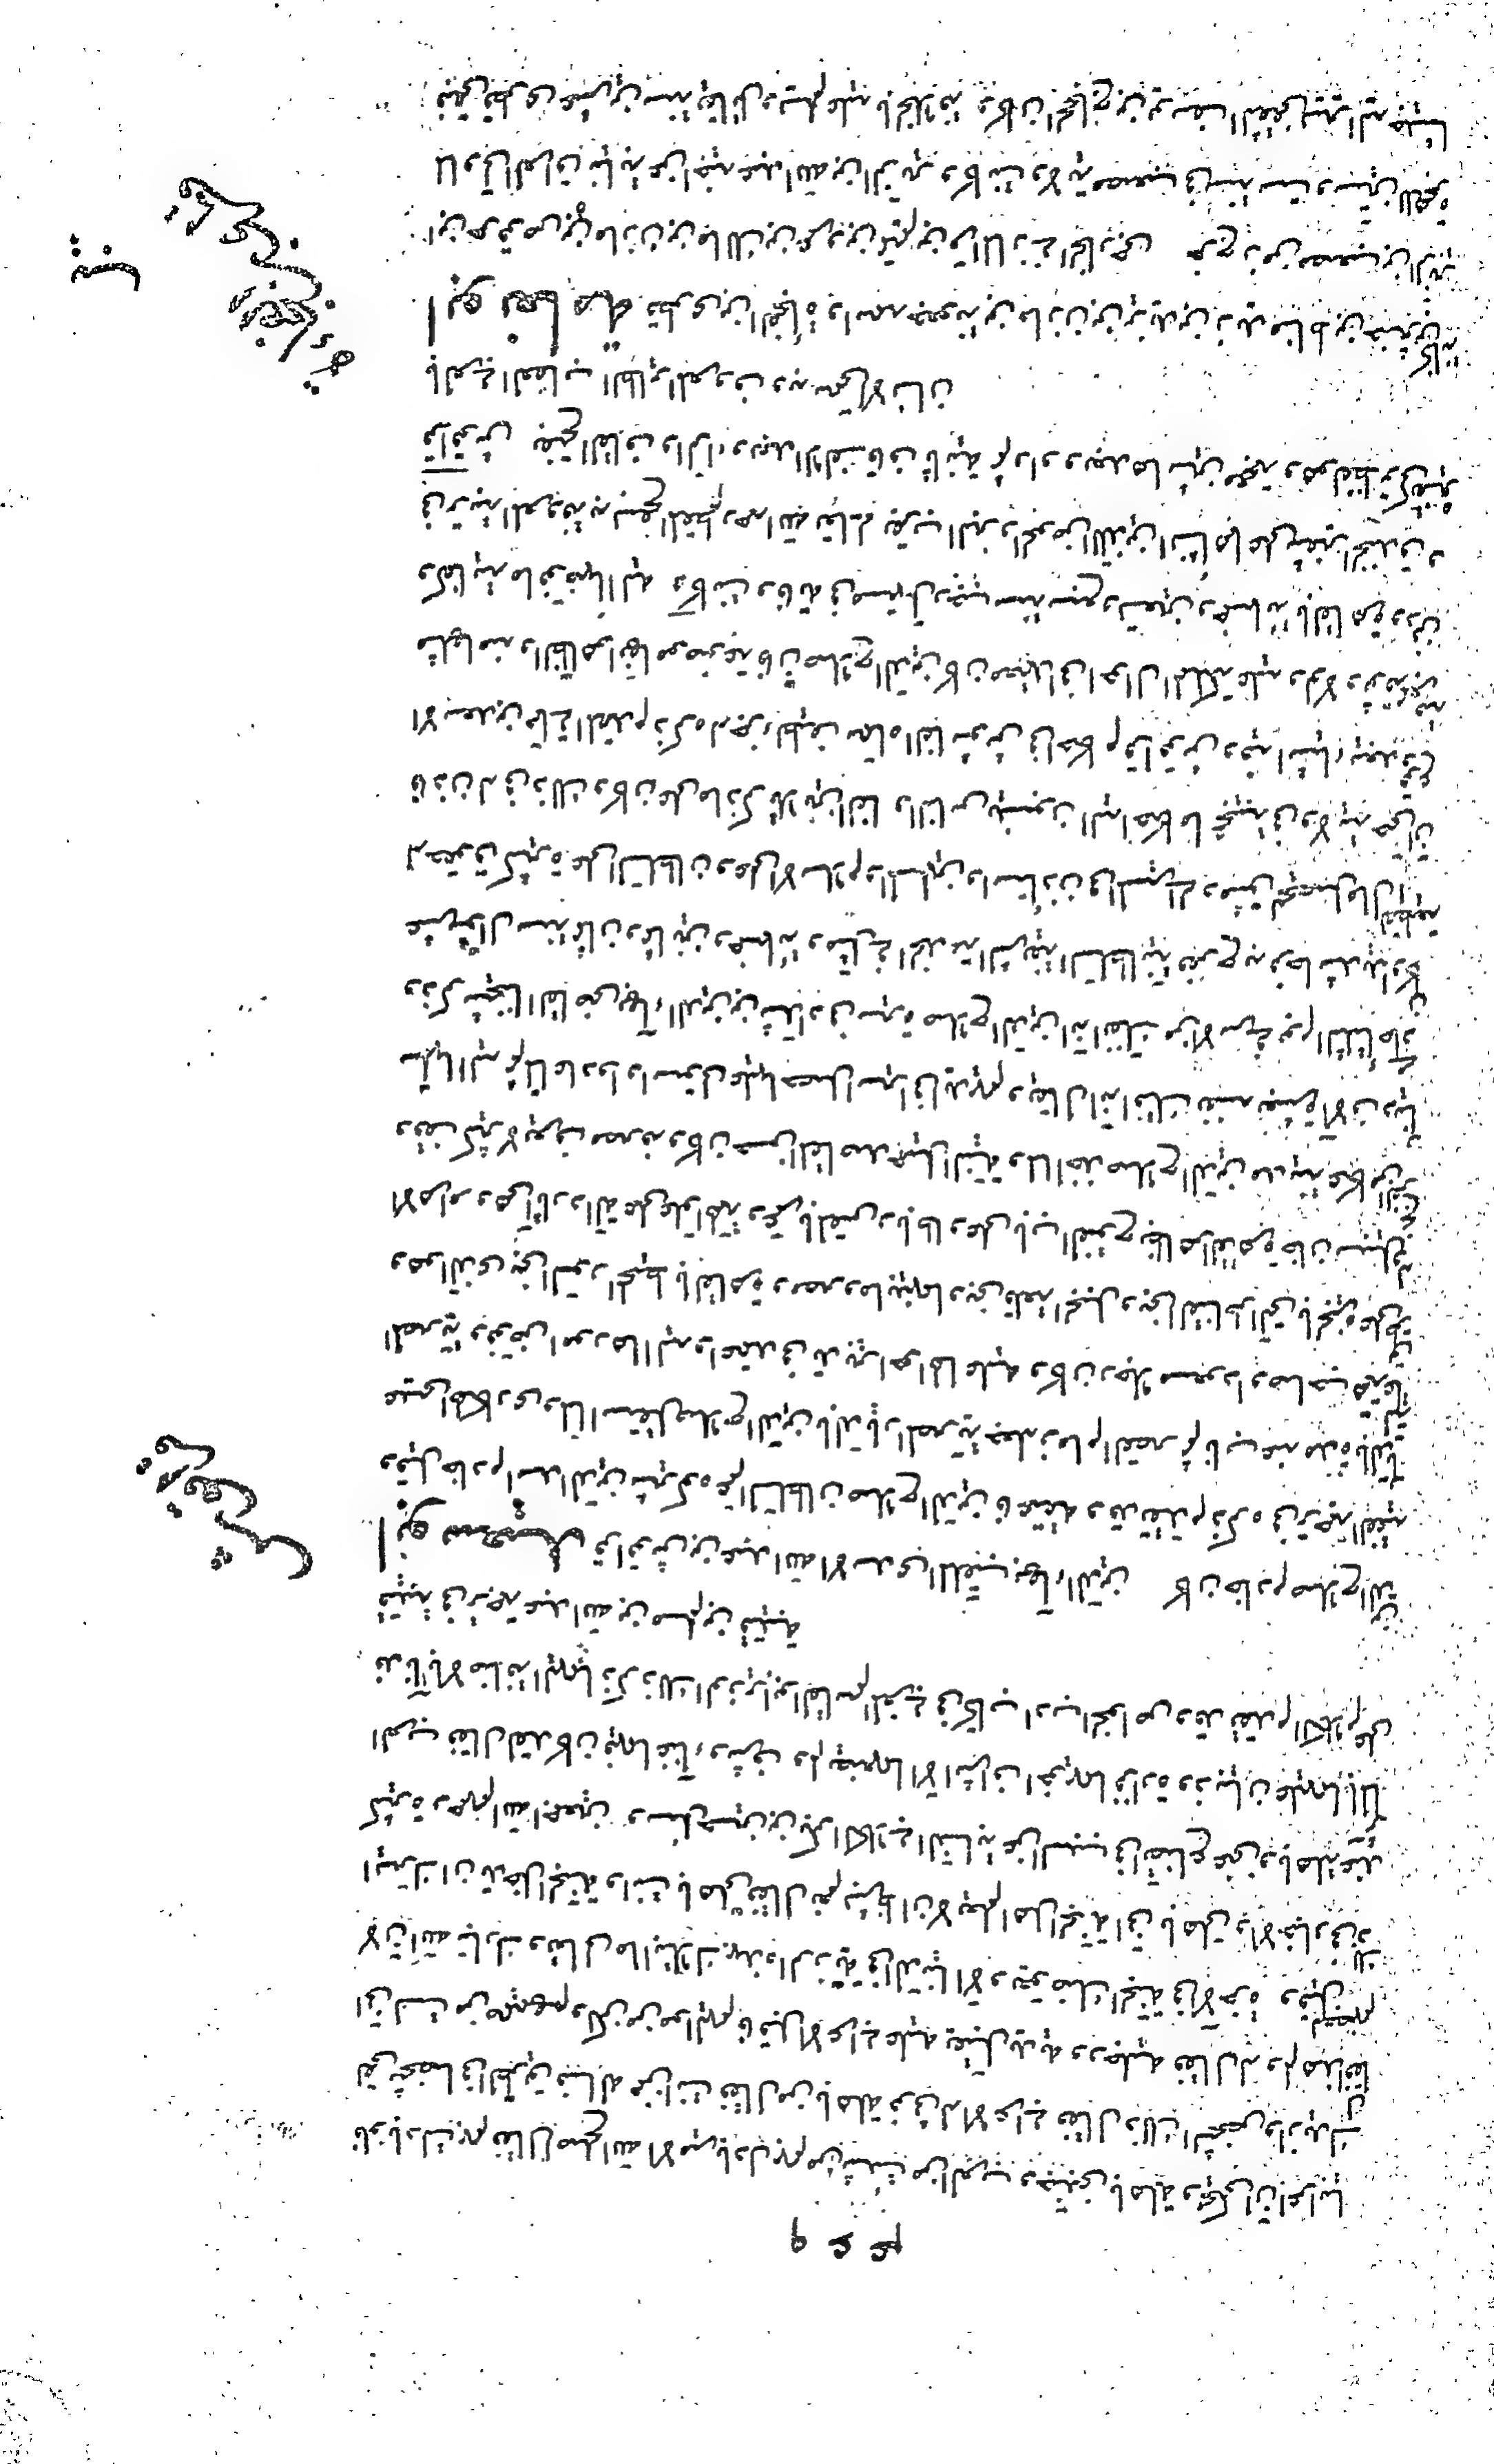 فان بادلتني بهم قال اصلح الله الامير بادل بهم من شئت من العرب وجنبني باهلة وحكي ان اعرابيا
لقي شخصا في الطريق فساله ممن انت فقال من باهلة فرثى له الاعرابي فقال ذلك الشخص وازيدك
اني لست من صميمهم ولكن من مواليهم فاقبل الاعرابي عليه يقبل يديه ورجليه فقال له ولم هذا فقال
لان الله تبارك وتعالى ما ابتلاك بهذه الرزية في الدنيا الا ويعوضك الجنة في الاخرة وقيل لبعضهم
ايسرك ان تدخل الجنة وانت باهلي فقال نعم بشرط ان لا يعلم اهل الجنة اني باهلي والاخبار في ذلك
كثيرة رحمهم الله اجمعين وسئل حسين بن بكر الكلابي النسابة عن السبب في اتضاع غني وباهلة عند
العرب فقال لقد كان فيهما غناء وشرف ولم يضعهما الا اشراف اخويهما فزارة وذبيان عليهما بالماثر
فدقا بالاضافة اليهما ذكر ذلك الوزير ابو القاسم المغربي في كتاب ادب الخواص وقد تقدم الكلام على
قتيبة في ترجمة عبد الله بن مسلم بن قتيبة
ابو سعيد قراقوش بن عبد الله الاسدي الملقب بهاء الدين كان خادم صلاح الدين
وقيل خادم اسد الدين شيركوه عم السلطان صلاح الدين فاعتقه وقد تقدم ذكره في ترجمة الفقيه
عيسى الهكاري ولما استقل صلاح الدين بالديار المصرية جعله زمام القصر ثم ناب عنه مدة بالديار
المصرية وفوض امورها اليه واعتمد في تدبير احوالها عليه وكان رجلا مسعودا وصاحب همة عالية
وهو الذي بنى السور المحيط بالقاهرة ومصر وما بينهما وبنى قلعة الجبل وبنى القناطر التي بالجيزة على طريق
الاهرام وهي اثار دالة على علو الهمة وعمر بالمقس رباطا وعلى باب الفتوح بظاهر القاهرة خان سبيل
وقف كثير لا يعرف مصرفه وكان حسن المقاصد جميل النية ولما اخذ صلاح الدين مدينة عكا من الفرنج
سلمها اليه ثم لما عادوا واستولوا عليها حصل اسيرا في ايديهم ويقال انه افتك نفسه بعشرة الاف دينار
وذكر شيخنا القاضي بهاء الدين بن شداد في سيرة صلاح الدين انه انفك من الاسر في يوم الثلاثاء حادي
عشر شوال سنة ثمان وثمانين وخمسمائة ومثل في الخدمة الشريفة السلطانية ففرح به فرحا شديدا وكان
له حقوق كثيرة على السلطان وعلى الاسلام والمسلمين واستاذن في المسير الى دمشق ليحصل مال القطيعة
فاذن له في ذلك وكان على ما ذكر ثلاثين الفا والناس ينسبون اليه احكاما عجيبة في ولايته حتى ان
الاسعد بن مماتي المقدم ذكره له جزء لطيف سماه الفاشوش في احكام قراقوش وفيه اشياء يبعد وقوع
مثلها منه والظاهر انها موضوعة فان صلاح الدين كان معتمدا في احوال المملكة عليه ولولا وثوقه بمعرفته
وكفايته ما فوضها اليه وكانت وفاته في مستهل رجب سنة سبع وتسعين وخمسمائة بالقاهرة ودفن
في تربته المعروفة به بسفح المقطم رحمه الله تعالى بقرب البير والحوض اللذين انشاهما على شفير الخندق و
قراقوش بفتح القاف والراء وبعد الالف قاف ثانية ثم واو وبعدها شين معجمة وهو لفظ تركي تفسيره
بالعربي العقاب الطائر المعروف وبه سمي الانسان
ابو نعامة قطري بن الفجاءة واسمه جعونة بن مازن بن يزيد بن زياد بن حنثر بن كابية
بن حرقوص بن مازن بن مالك بن عمرو بن تميم بن مر المازني الخارجي خرج زمن مصعب بن الزبير
لما ولي العراق نيابة عن اخيه عبد الله بن الزبير وكانت ولاية مصعب في سنة ست وستين للهجرة
فبقي قطري عشرين سنة يقاتل ويسلم عليه بالخلافة وكان الحجاج بن يوسف الثقفي يسير اليه جيشا